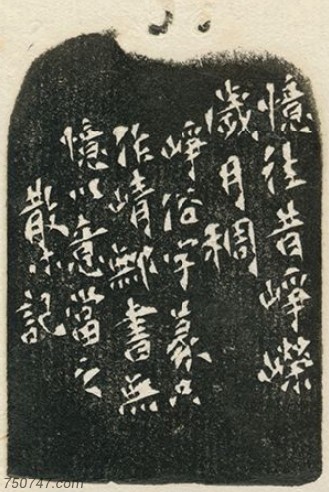 憶往昔崢嶸
歲月稠
崢俗字篆只
作崝鄦書無
憶以意當之
散木記
750747.com